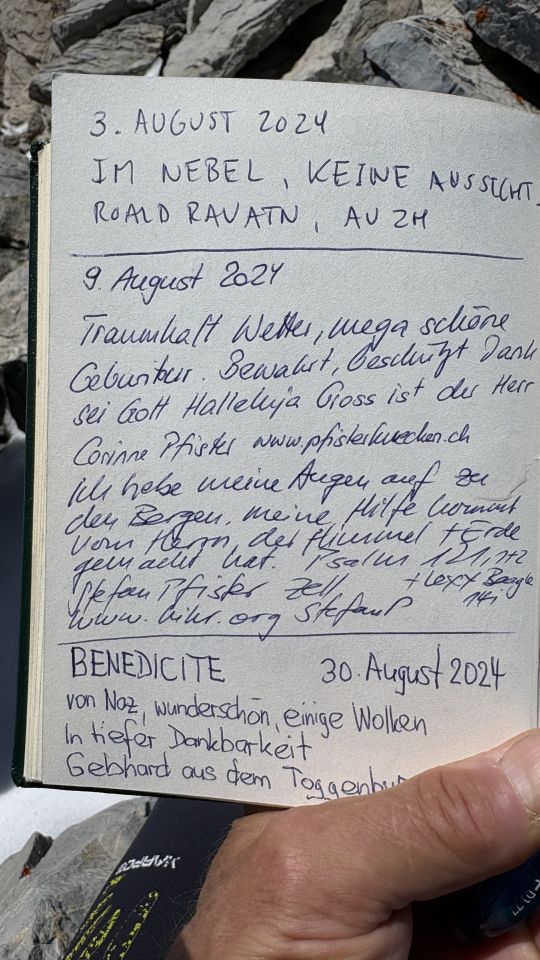 3. AUGUST 2024
IM NEBEL, KEINE AUSSICHT.
ROALD RAVATN, AU ZH
9. August 2024
Traumhaft Wetter, mega schöne
Bewahrt, beschützt Dank
sei Gott Halleluja Gross ist der Herr
Corinne Pfister www.pfisterkuechen.ch
Ich hebe meine Augen auf zu
den Bergen, meine Hilfe kommt
vom Herrn, der Himmel + Erde
gemacht hat. Psalm 121, 1+2
Stefan Pfister Zell + Lexx Beagle
www.hikr.org StefanP 14j
BENEDICITE 30. August 2024
von Naz, wunderschön, einige Wolken
In tiefer Dankbarkeit
Gebhard aus dem Toggenbur